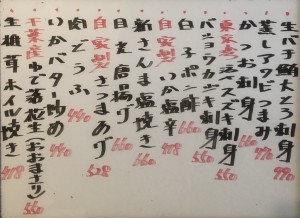 生バチ鮪大とろ刺身 990
蒸しアワビつまみ 990
かつお刺身 660
東京湾スズキ刺身 660
バショウカジキ刺身 660
白子ポン酢 660
自家製いか塩辛 418
新さんま塩焼き 660
目光唐揚げ 660
自家製さつまあげ 528
肉どうふ 440
いかバター炒め 440
千葉産ゆで落花生(おおまさり)
生椎茸ホイル焼き 418